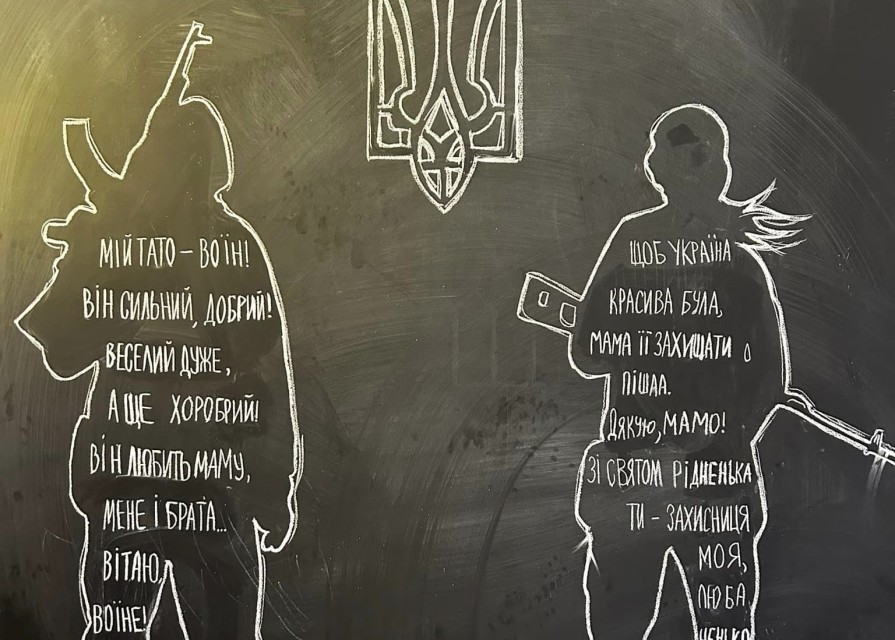 МІЙ ТАТО – ВОЇН!
ВІН СИЛЬНИЙ, ДОБРИЙ!
ВЕСЕЛИЙ ДУЖЕ,
А ЩЕ ХОРОБРИЙ!
ВІН ЛЮБИТЬ МАМУ,
МЕНЕ І БРАТА...
ВІТАЮ,
ВОЇНЕ!
ЩОБ УКРАЇНА
КРАСИВА БУЛА,
МАМА ЇЇ ЗАХИЩАТИ
ПІШЛА.
ДЯКУЮ, МАМО!
ЗІ СВЯТОМ РІДНЕНЬКА
ТИ – ЗАХИСНИЦЯ
МОЯ,
ЛЮБА